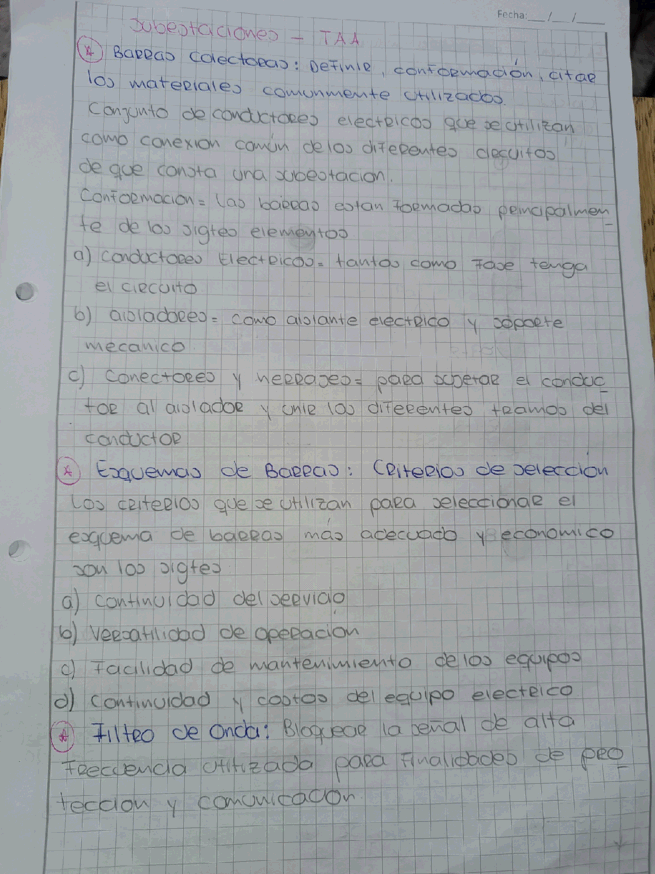 Fecha: __/__/__
Subestaciones - TAA
* Barras Colectoras: Definir, conformación, citar
los materiales comunmente utilizados.
Conjunto de conductores electricos que se utilizan
como conexion común de los diferentes circuitos
de que consta una subestacion.
Conformacion = Las barras estan formadas principalmen-
te de los sigtes elementos
a) conductores Electricos = tantos como Fase tenga
el circuito
b) aisladores = como aislante electrico y soporte
mecanico
c) Conectores y herrajes = para sujetar el conduc-
tor al aislador y unir los diferentes tramos del
conductor
* Esquemas de Barras: Criterios de selección
Los criterios que se utilizan para seleccionar el
esquema de barras más adecuado y economico
son los sigtes
a) continuidad del servicio
b) versatilidad de operación
c) Facilidad de mantenimiento de los equipos
d) Continuidad y costos del equipo electrico
* Filtro de Onda: Bloquear la señal de alta
Frecuencia utilizada para finalidades de pro-
teccion y comunicacion